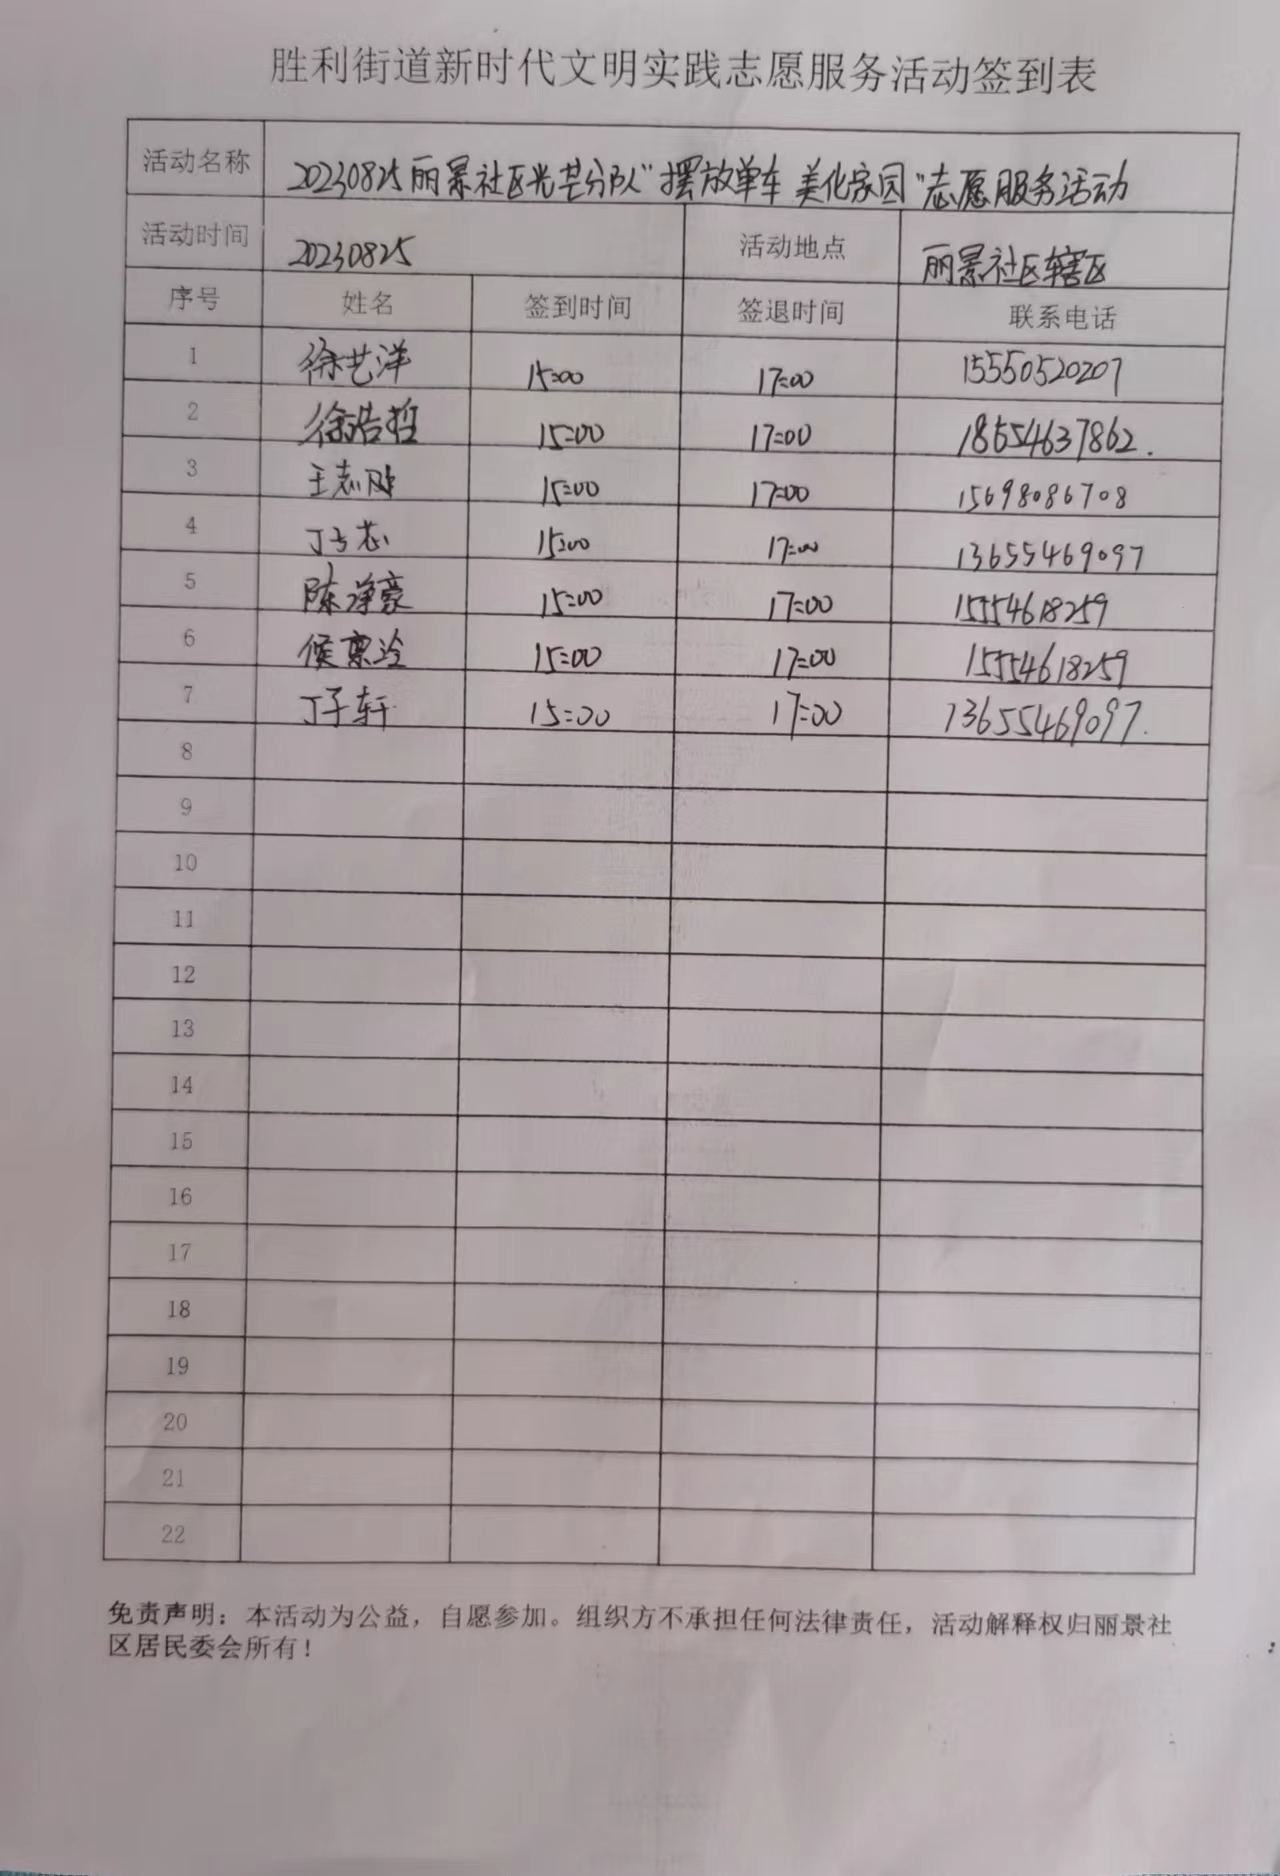 胜利街道新时代文明实践志愿服务活动签到表
活动名称 20230825丽景社区光芒分队"摆放单车 美化家园"志愿服务活动
活动时间 20230825 活动地点 丽景社区辖区
序号 姓名 签到时间 签退时间 联系电话
1 徐艺洋 15:00 17:00 15550520207
2 徐浩哲 15:00 17:00 18654637862.
3 王志刚 15:00 17:00 15698086708
4 丁 芯 15:00 17:00 13655469097
5 陈净豪 15:00 17:00 15554618259
6 侯 15:00 17:00 15554618259
7 丁子轩 15:00 17:00 13655469097.
8
9
10
11
12
13
14
15
16
17
18
19
20
21
22
免责声明：本活动为公益，自愿参加。组织方不承担任何法律责任，活动解释权归丽景社
区居民委会所有！